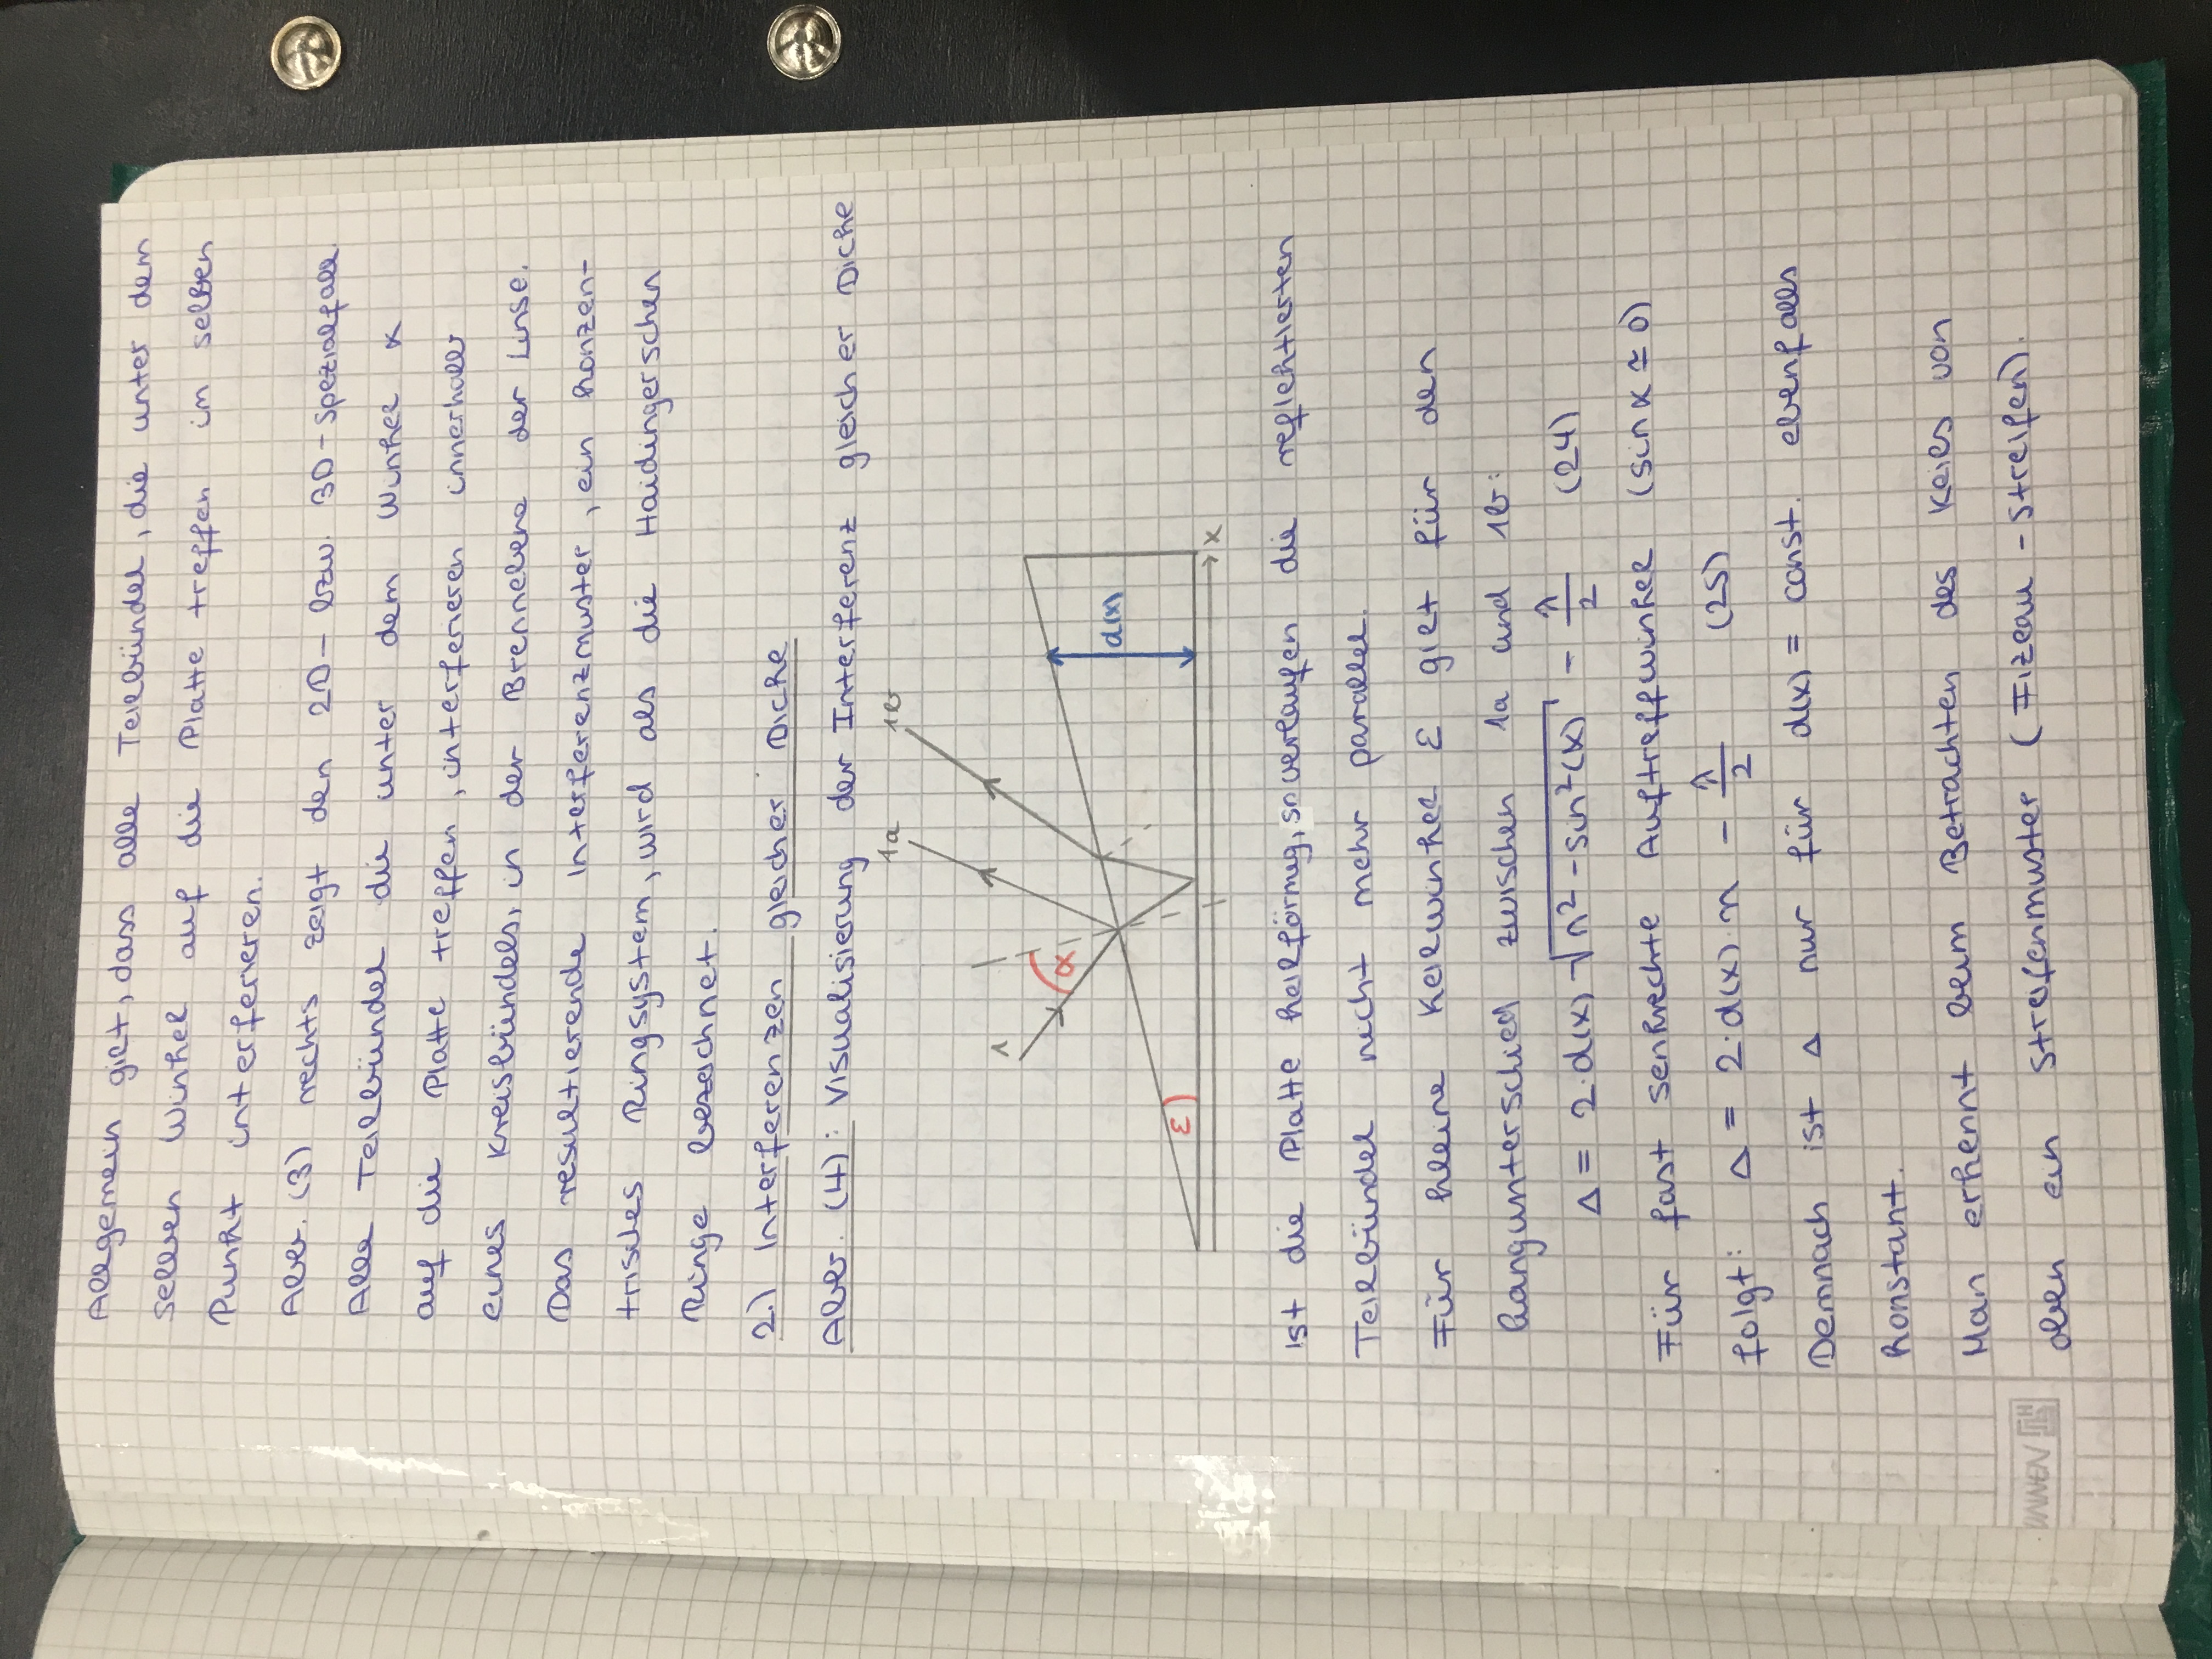 Allgemein gilt, dass alle Teilbündel, die unter dem
selben Winkel auf die Platte treffen im selben
Punkt interferieren.
Abb. (3) rechts zeigt den 2D- bzw. 3D-Spezialfall.
Alle Teilbündel die unter dem Winkel α
auf die Platte treffen, interferieren innerhalb
eines Kreisbündels, in der Brennebene der Linse.
Das resultierende Interferenzmuster, ein konzen-
trisches Ringsystem, wird als die Haidingerschen
Ringe bezeichnet.
2.) Interferenzen gleicher Dicke
Abb. (4): Visualisierung der Interferenz gleicher Dicke
1a 1b
1
α
d(x)
ε
x
ist die Platte keilförmig, so verlaufen die reflektierten
Teilbündel nicht mehr parallel.
Für kleine Keilwinkel ε gilt für den
Gangunterschied zwischen 1a und 1b:
Δ = 2·d(x) √(n² - sin²(α)) - λ/2 (24)
Für fast senkrechte Auftreffwinkel (sin α ≃ 0)
folgt: Δ = 2·d(x)·n - λ/2 (25)
Demnach ist Δ nur für d(x) = const. ebenfalls
konstant.
Man erkennt beim Betrachten des Keils von
oben ein Streifenmuster (Fizeau-Streifen).